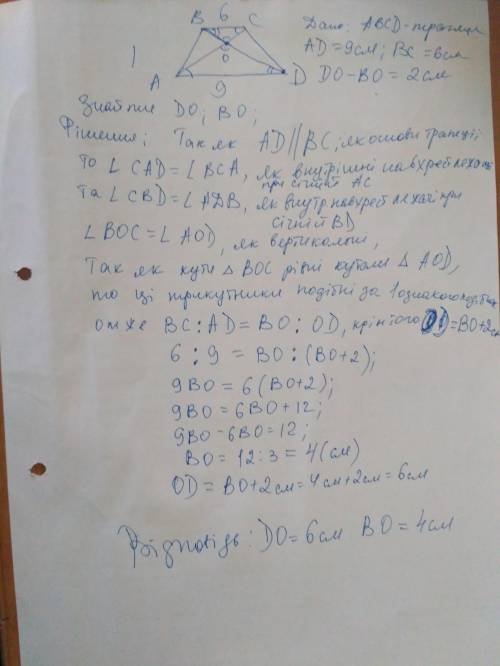 B 6 C
O
A 9 D
1
Дано: ABCD - трапеція
AD = 9 см; BC = 6 см
DO - BO = 2 см
Знайти DO; BO;
Рішення; Так як AD || BC, як основи трапеції,
то ∠CAD = ∠BCA, як внутрішні навхрест лежачі
при січній AC
Та ∠CBD = ∠ADB, як внутр навхрест лежачі при
січній BD
∠BOC = ∠AOD, як вертикальні,
Так як кути △ BOC рівні кутами △ AOD,
то ці трикутники подібні за 1 ознакою
отже BC : AD = BO : OD, крім того OD = BO + 2 см
6 : 9 = BO : (BO + 2);
9BO = 6(BO + 2);
9BO = 6BO + 12;
9BO - 6BO = 12;
BO = 12 : 3 = 4 (см)
OD = BO + 2 см = 4 см + 2 см = 6 см
Відповідь: DO = 6 см BO = 4 см